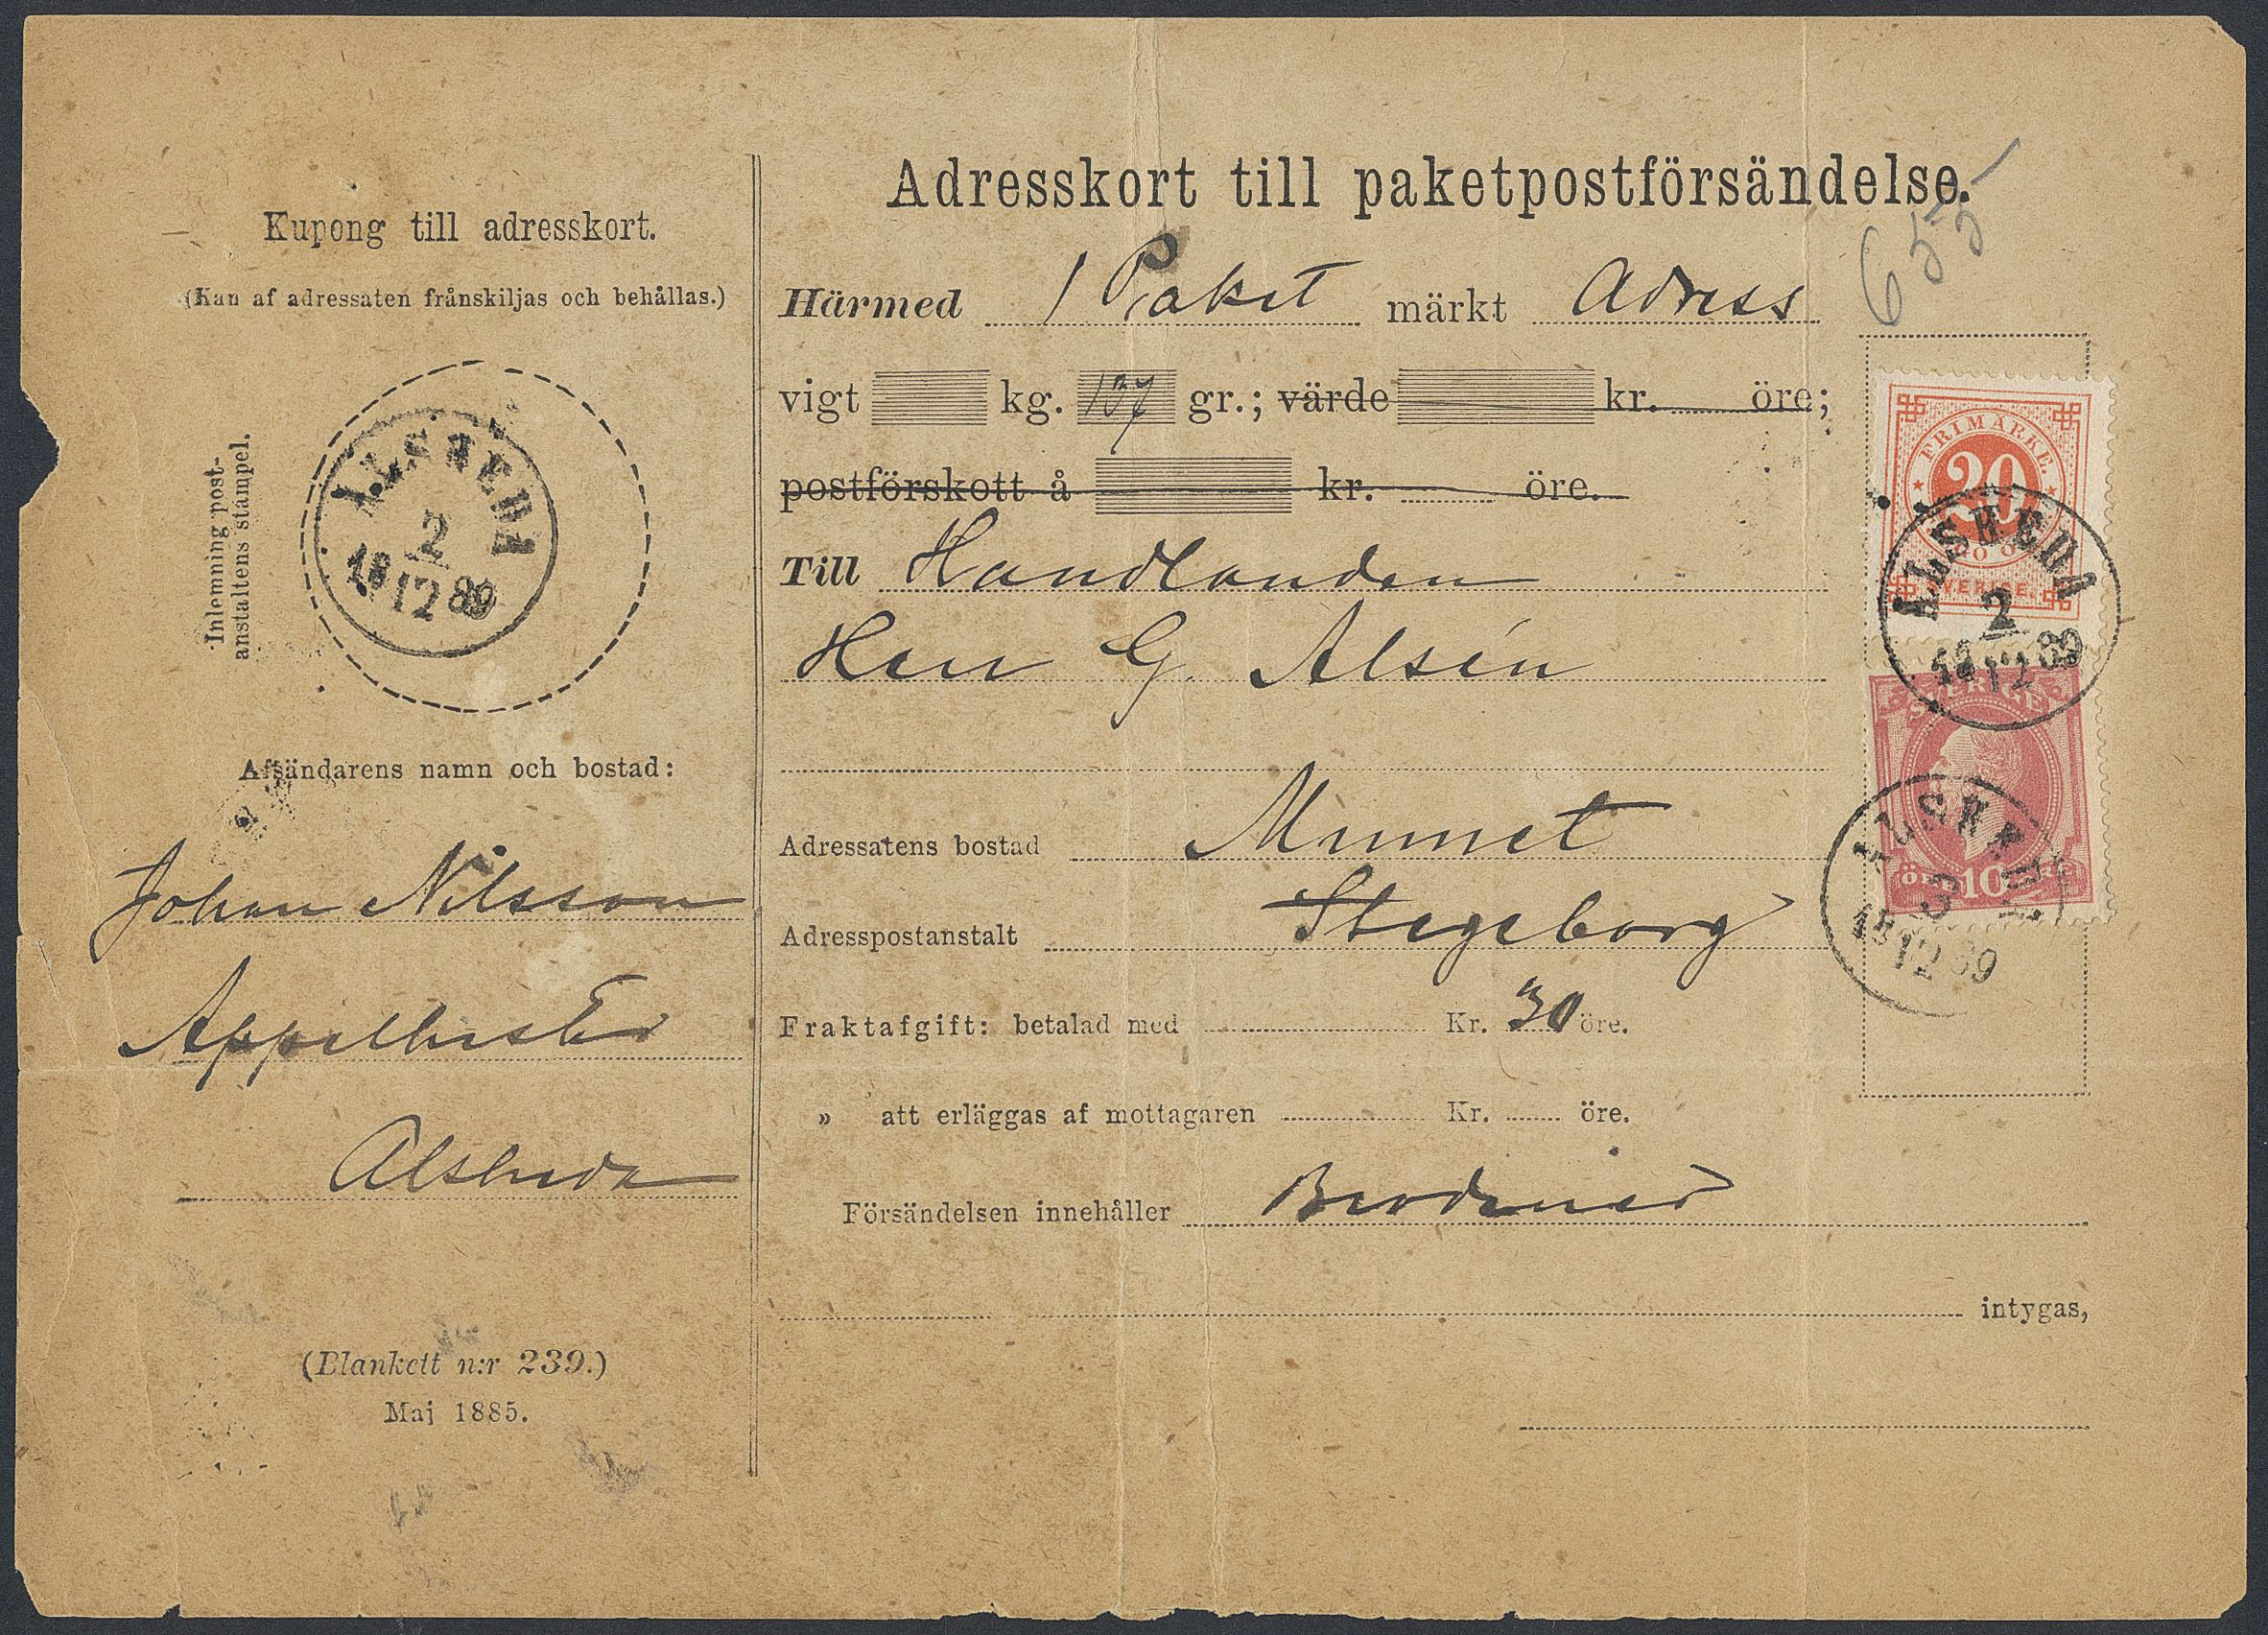 Kupong till adresskort.
(Kan af adressaten frånskiljas och behållas.)
Inlemning post-
anstaltens stämpel.
ALSHEDA
2
18 12 89
Afsändarens namn och bostad:
Johan Nilsson
Alsheda
(Blankett n:r 239.)
Maj 1885.
Adresskort till paketpostförsändelse.
655
Härmed 1 Paket märkt Adress
vigt kg. 137 gr.; värde kr. öre;
postförskott å kr. öre.
Till Handlanden
Herr G. Alsén
Adressatens bostad Mumet
Adresspostanstalt Stegeborg
Fraktafgift: betalad med Kr. 30 öre.
" att erläggas af mottagaren Kr. öre.
Försändelsen innehåller
intygas,
FRIMÄRKE
20
SVERIGE
ALSHEDA
2
18 12 89
SVERIGE
ÖRE 10
ALSHEDA
18 12 89